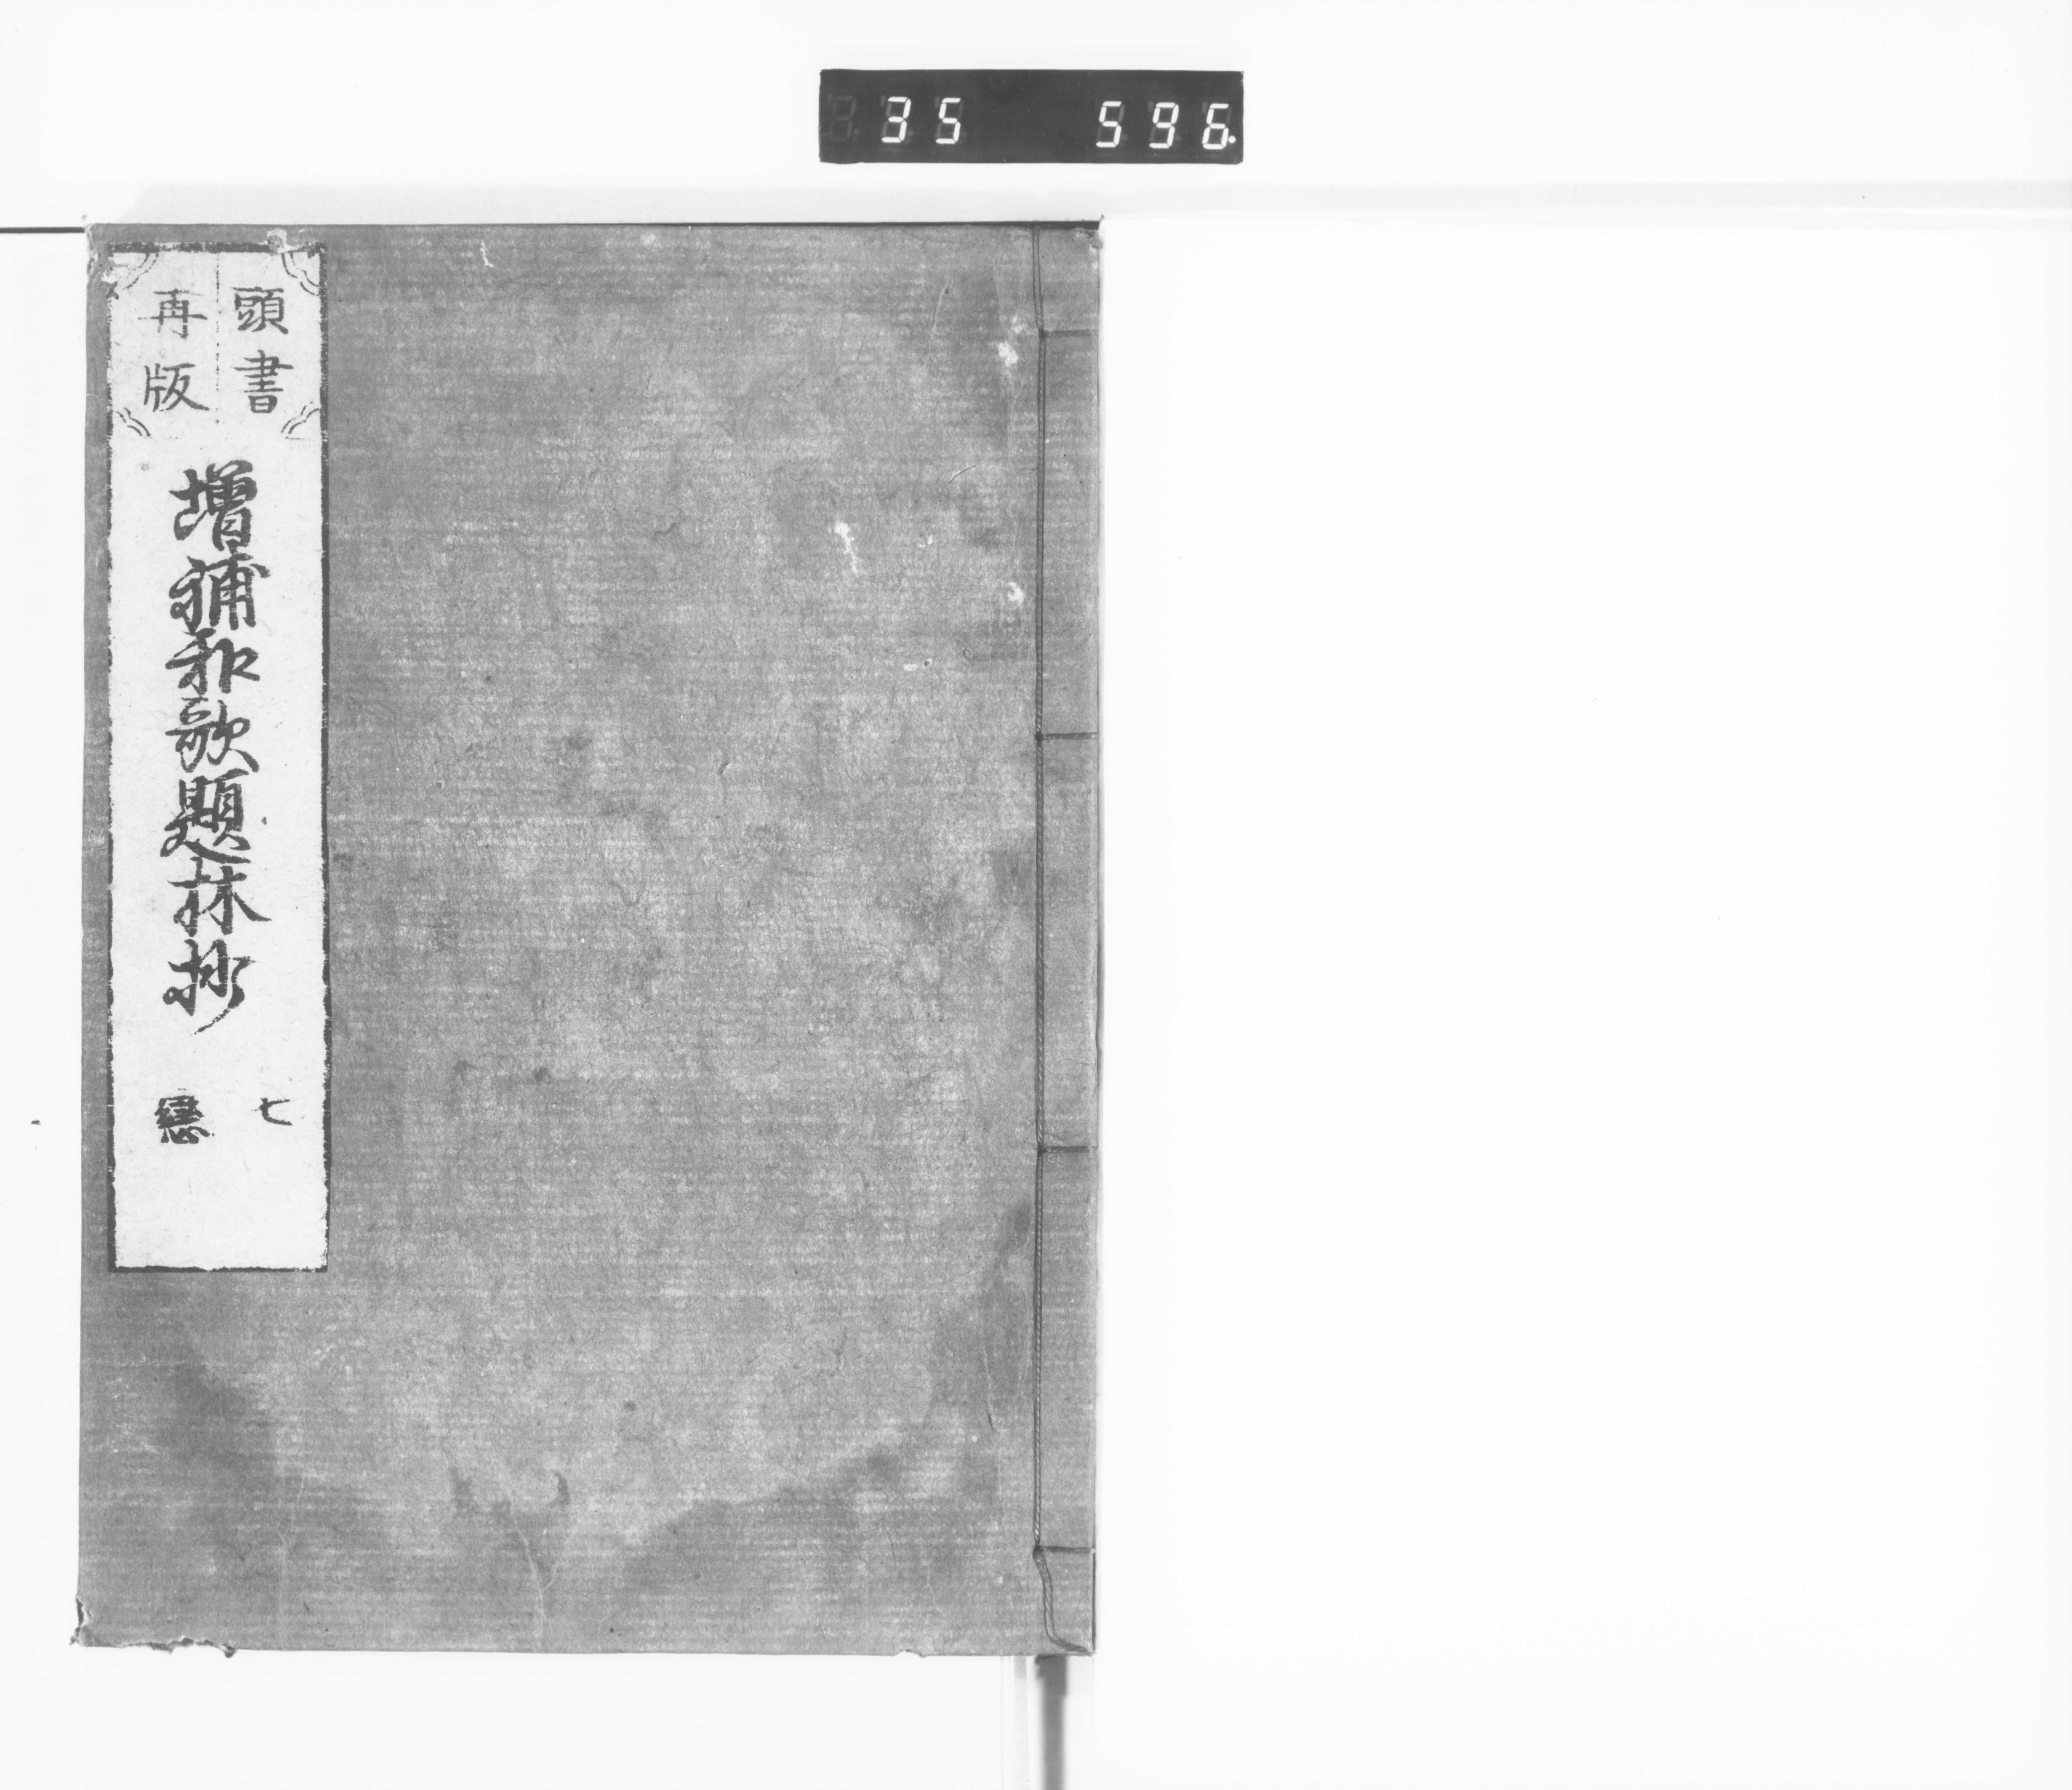 35 596.
頭書
再版
増補和歌題林抄
七
戀